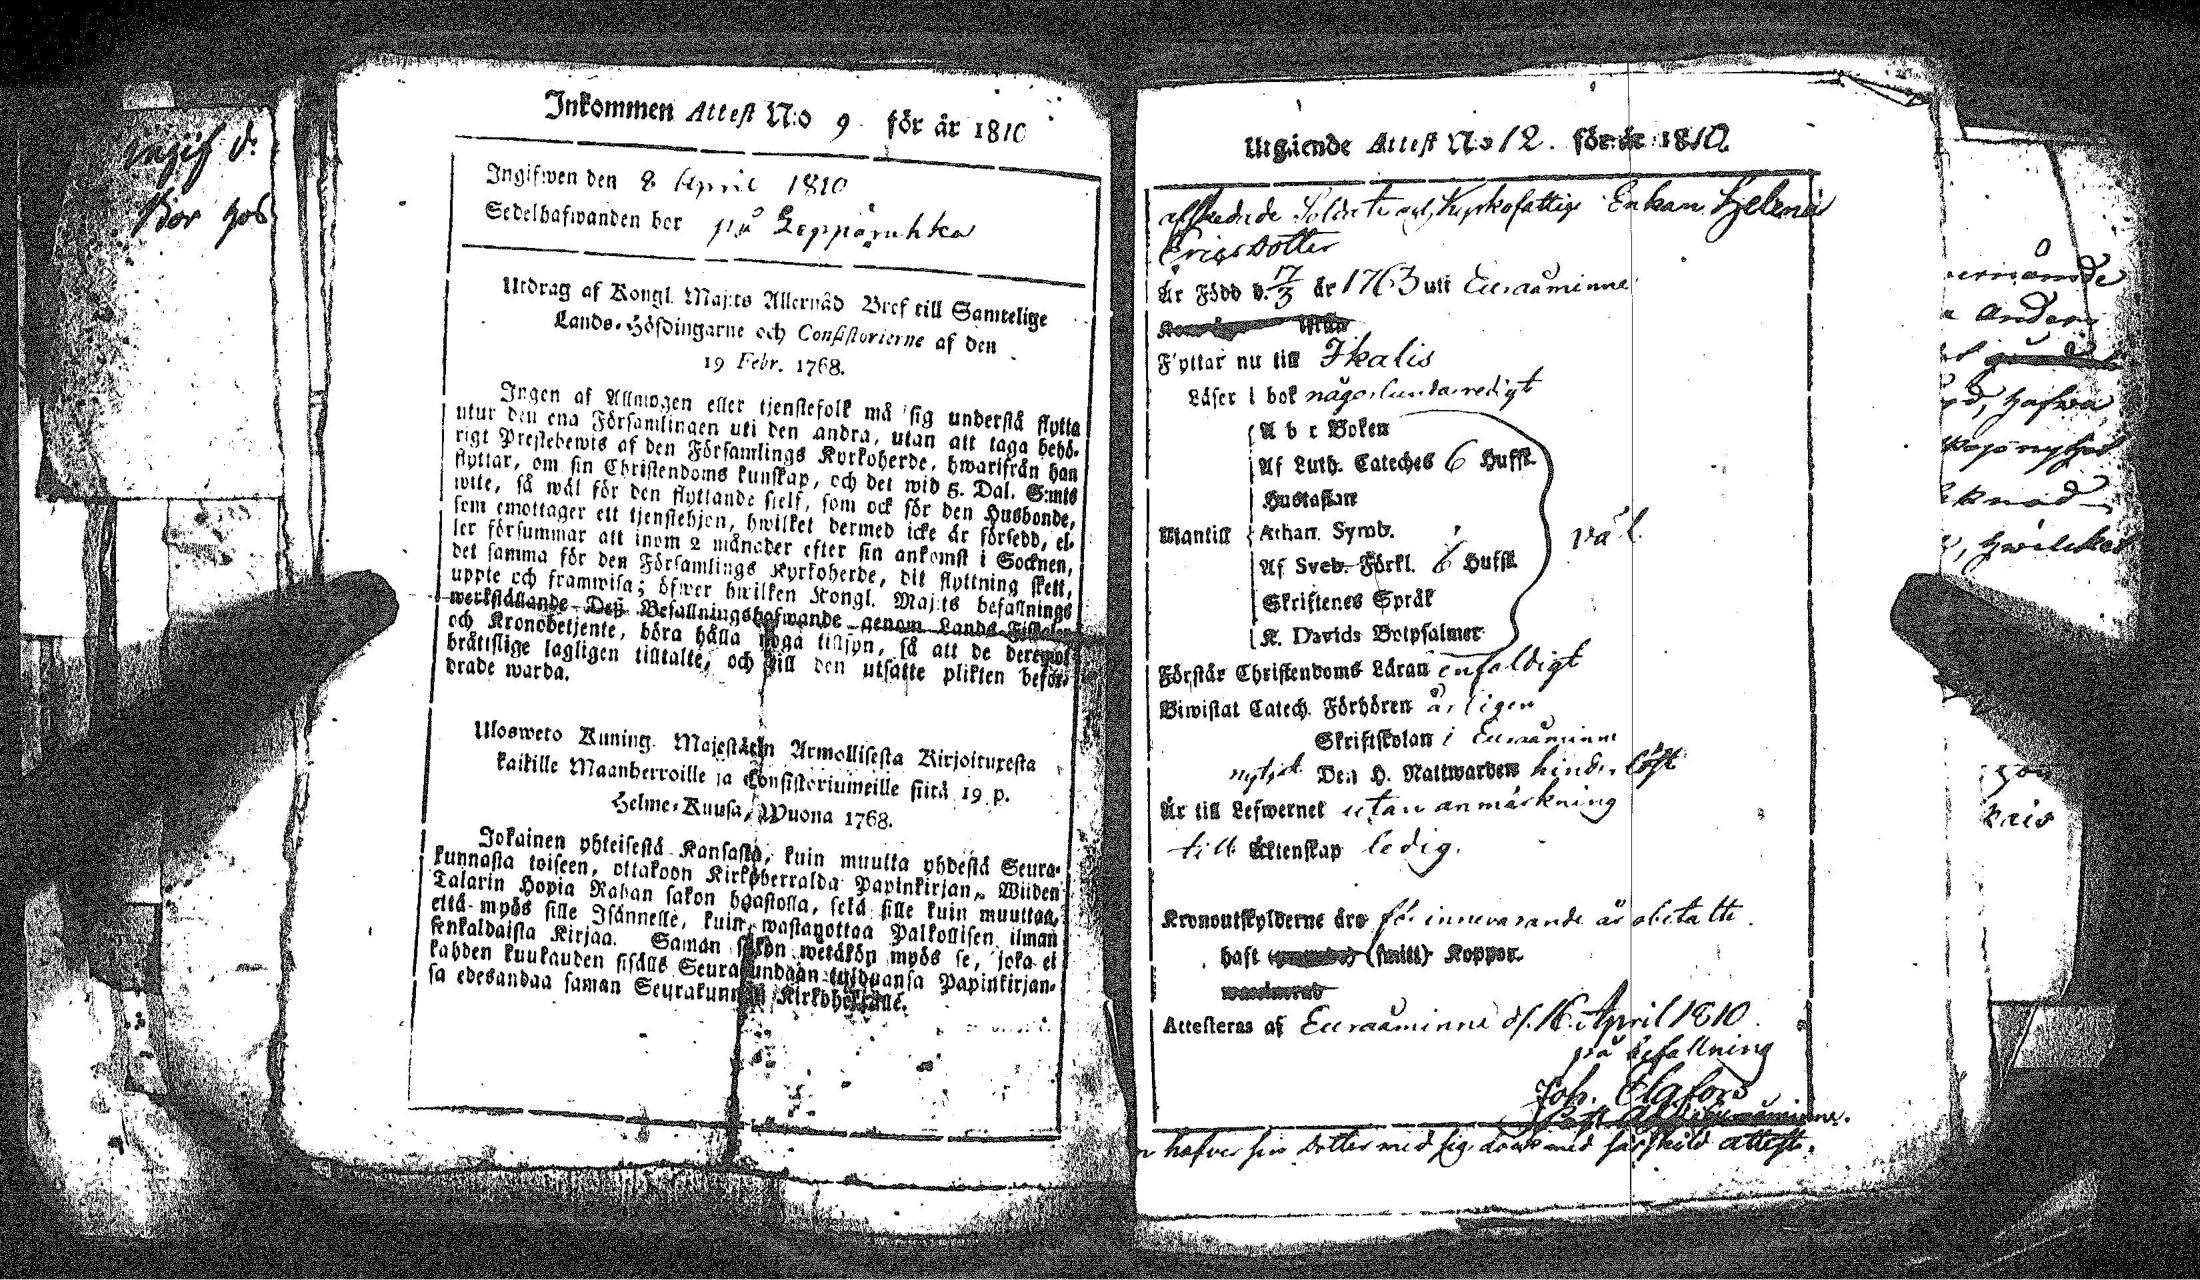 ingif d.
Bor hos
Inkommen Attest N:o 9 för år 1810
Ingifwen den 8 April 1810
Sedelhafwanden bor på Leppäruhka
Utdrag af Kongl. Maj:ts Allernåd Bref till Samtelige
Lands-Höfdingarne och Consistorierne af den
19 Febr. 1768.
Ingen af Allmogen eller tjenstefolk må sig understå flytta
utur den ena Församlingen uti den andra, utan att taga behö-
rigt Prestebewis af den Församlings Kyrkoherde, hwarifrån han
flyttar, om sin Christendoms kunskap, och det wid 5. Dal. S:mts
wite, så wäl för den flyttande sjelf, som ock för den Husbonde,
som emottager ett tjenstehjon, hwilket dermed icke är försedd, el-
ler försummar att inom 2 månader efter sin ankomst i Socknen,
det samma för den Församlings Kyrkoherde, dit flyttning skett,
uppte och framwisa; öfwer hwilken Kongl. Maj:ts befallnings
werkställande Deß Befallningshafwande genom Lands Fiskaler
och Kronobetjente, böra hålla noga tillsyn, så att de deremot
bråttslige lagligen tilltalte, och till den utsatte plikten befor-
drade warda.
Ulosweto Kuning. Majestätin Armollisesta Kirjoituxesta
kaikille Maanherroille ja Consistoriumeille siitä 19 p.
Helme-Kuusa, Wuona 1768.
Jokainen yhteisestä Kansasta, kuin muutta yhdestä Seura-
kunnasta toiseen, ottakoon Kirkkoherralda Papinkirjan, Wiiden
Talarin Hopia Rahan sakon haastolla, sekä sille kuin muuttaa,
että myös sille Isännelle, kuin wastanottaa Palkollisen ilman
senkaldaista Kirjaa. Saman sakon wetäkön myös se, joka ei
kahden kuukauden sisälle Seurakundaan tulduansa Papinkirjan-
sa edesandaa saman Seurakunnan Kirkkoherralle.
Utgående Attest N:o 12. för år 1810.
afskedade Soldaten Kyrkofattige Enkan Helena
Ericsdotter
Är Född d. 17/3 år 1763 uti Euraåminne
Flyttar nu till Ikalis
Läser i bok någorlunda redigt
A b c Boken
Af Luth. Cateches 6 Hufst.
Hustaflan
Utantill Athan. Symb. väl.
Af Sveb. Förkl. 6 Hufst.
Skriftenes Språk
K. Davids Botpsalmer
Förstår Christendoms Läran enfaldigt
Biwistat Catech. Förhören årligen
Skriftskolan i Euraåminne
nytjat Den H. Nattwarden hinderlöst
Är till Lefwernet utan anmärkning
till Äktenskap ledig.
Kronoutskylderne äro för innevarande år obetalte.
haft (smitt) Koppor.
Attesteras af Euraåminne d. 16. April 1810.
på befallning
Joh. Elgfors
hafver sin Dotter med sig med särskild attest.